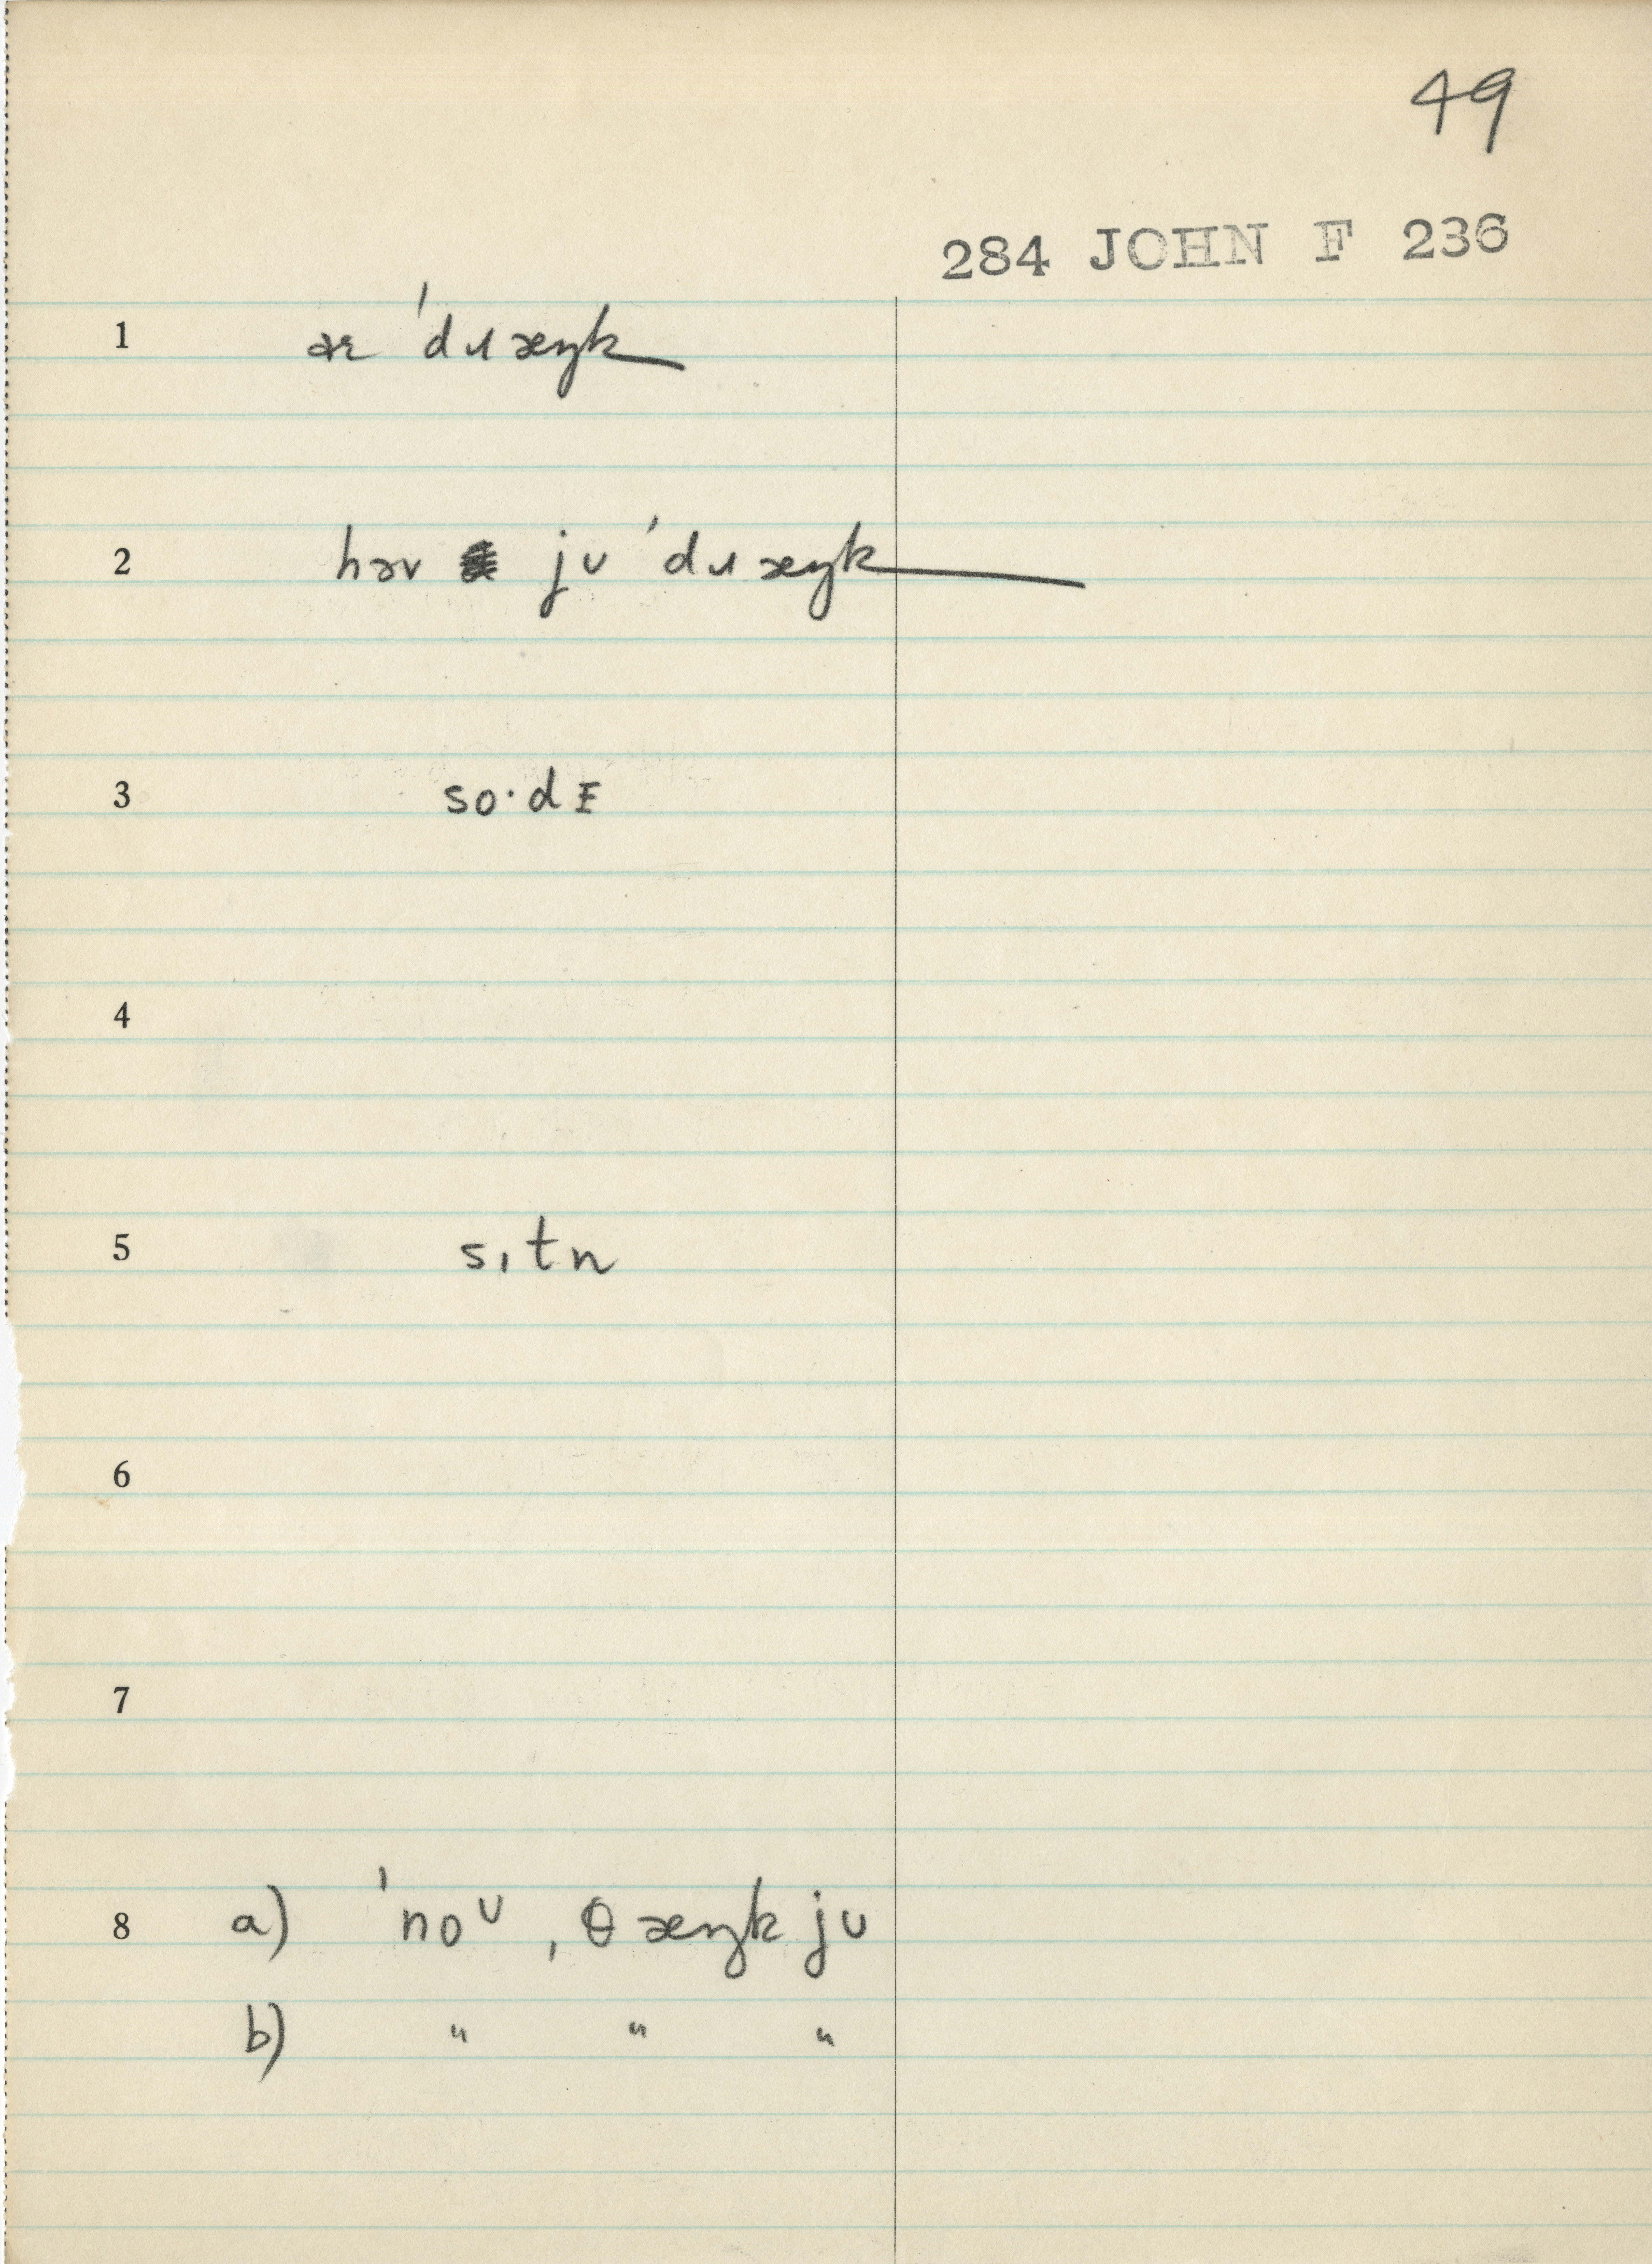 49
284 JOHN F 236
1 aɪ ˈdɹæŋk
2 həv ju ˈdɹæŋk
3 so·dᴇ
4
5 sɪtn
6
7
8 a) ˈnoᴜ ˌθæŋk ju
b) " " "